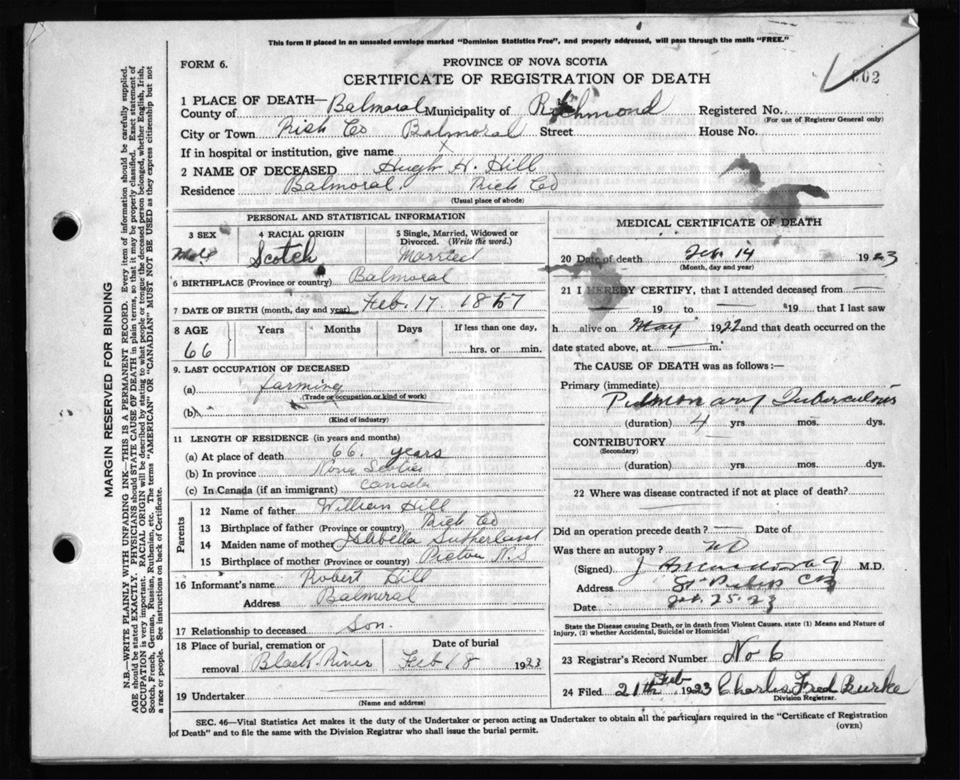 This form if placed in an unsealed envelope marked "Dominion Statistics Free", and properly addressed, will pass through the mails "FREE."
FORM 6.
PROVINCE OF NOVA SCOTIA
CERTIFICATE OF REGISTRATION OF DEATH
602
1 PLACE OF DEATH—
County of Balmoral Municipality of Richmond Registered No.
(For use of Registrar General only)
City or Town Rich Co Balmoral Street House No.
If in hospital or institution, give name x
2 NAME OF DECEASED Hugh H. Hill
Residence Balmoral Rich Co
(Usual place of abode)
PERSONAL AND STATISTICAL INFORMATION
3 SEX
Male
4 RACIAL ORIGIN
Scotch
5 Single, Married, Widowed or Divorced. (Write the word.)
Married
6 BIRTHPLACE (Province or country) Balmoral
7 DATE OF BIRTH (month, day and year) Feb. 17 1857
8 AGE Years Months Days If less than one day,
66 hrs. or min.
9. LAST OCCUPATION OF DECEASED
(a) farming
(Trade or occupation or kind of work)
(b)
(Kind of industry)
11 LENGTH OF RESIDENCE (in years and months)
(a) At place of death 66. years
(b) In province Nova Scotia
(c) In Canada (if an immigrant) Canada
Parents
12 Name of father William Hill
13 Birthplace of father (Province or country) Rich Co
14 Maiden name of mother Isabella Sutherland
15 Birthplace of mother (Province or country) Pictou N.S
16 Informant's name Robert Hill
Address Balmoral
17 Relationship to deceased Son.
18 Place of burial, cremation or removal Black River
Date of burial
Feb 18 1923
19 Undertaker
(Name and address)
MEDICAL CERTIFICATE OF DEATH
20 Date of death Feb 14 1923
(Month, day and year)
21 I HEREBY CERTIFY, that I attended deceased from
19 to 19 that I last saw
h alive on May 1922 and that death occurred on
date stated above, at m.
The CAUSE OF DEATH was as follows:—
Primary (immediate)
Pulmonary Tuberculosis
(duration) 4 yrs mos. dys.
CONTRIBUTORY
(Secondary)
(duration) yrs. mos. dys.
22 Where was disease contracted if not at place of death?
Did an operation precede death? — Date of
Was there an autopsy? NO
(Signed) M.D.
Address St Peters CB
Date Feb. 25. 23
State the Disease causing Death, or in death from Violent Causes, state (1) Means and Nature of Injury, (2) whether Accidental, Suicidal or Homicidal
23 Registrar's Record Number No 6
24 Filed 21th Feb 1923 Charles Fred Burke
Division Registrar.
SEC. 46—Vital Statistics Act makes it the duty of the Undertaker or person acting as Undertaker to obtain all the particulars required in the "Certificate of Registration
of Death" and to file the same with the Division Registrar who shall issue the burial permit.
(OVER)
MARGIN RESERVED FOR BINDING
N.B.—WRITE PLAINLY WITH UNFADING INK—THIS IS A PERMANENT RECORD. Every item of information should be carefully supplied.
AGE should be stated EXACTLY. PHYSICIANS should STATE CAUSE OF DEATH in plain terms, so that it may be properly classified. Exact statement of
OCCUPATION is very important. RACIAL ORIGIN will be described by stating to what people or tongue the deceased person belonged, whether English, Irish,
Scotch, French, German, Russian, Ruthenian, etc. The terms "AMERICAN" OR "CANADIAN" MUST NOT BE USED as they express citizenship but not
a race or people. See instructions on back of Certificate.